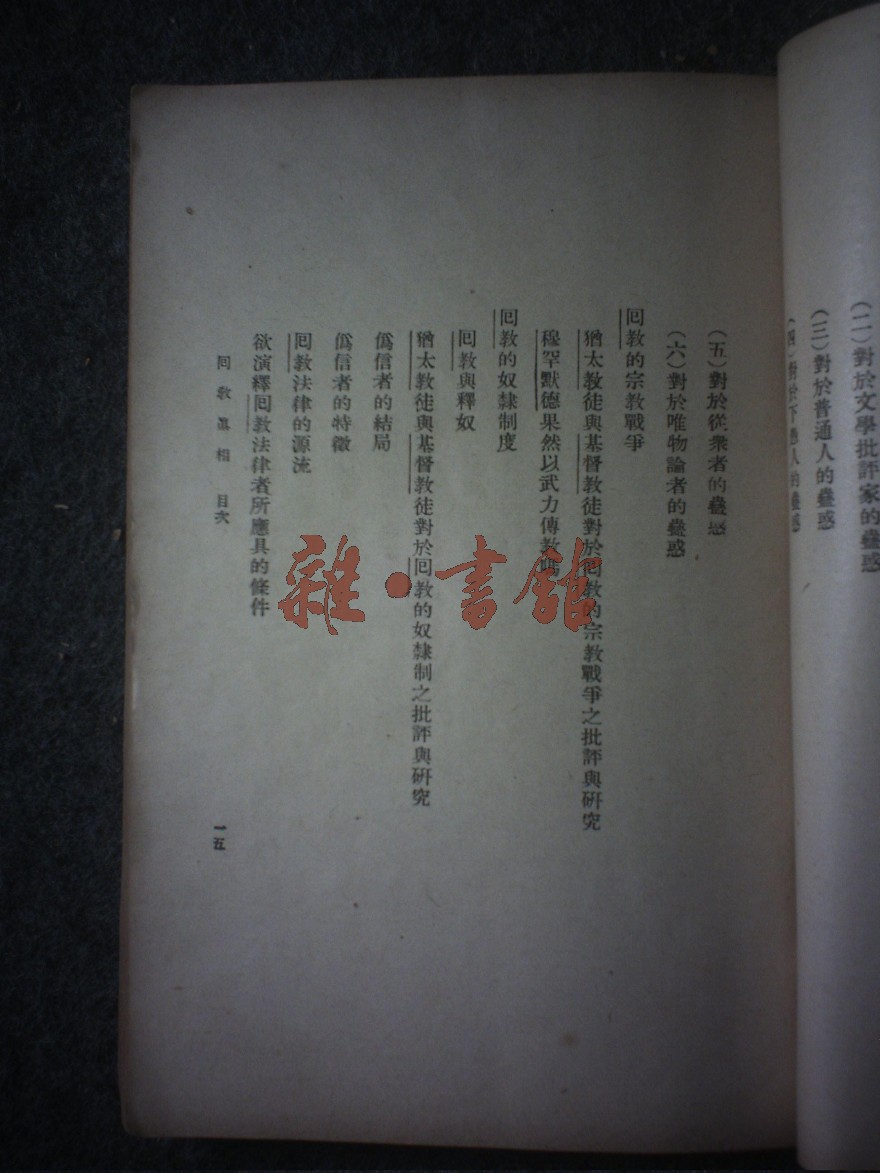 (二)對於文學批評家的蠱惑
(三)對於普通人的蠱惑
(四)對於下愚人的蠱惑
(五)對於從衆者的蠱惑
(六)對於唯物論者的蠱惑
回教的宗教戰爭
猶太教徒與基督教徒對於回教的宗教戰爭之批評與研究
穆罕默德果然以武力傳教嗎
回教的奴隸制度
回教與釋奴
猶太教徒與基督教徒對於回教的奴隸制之批評與研究
僞信者的結局
僞信者的特徵
回教法律的源流
欲演繹回教法律者所應具的條件
回教眞相 目次
一五
雜·書館